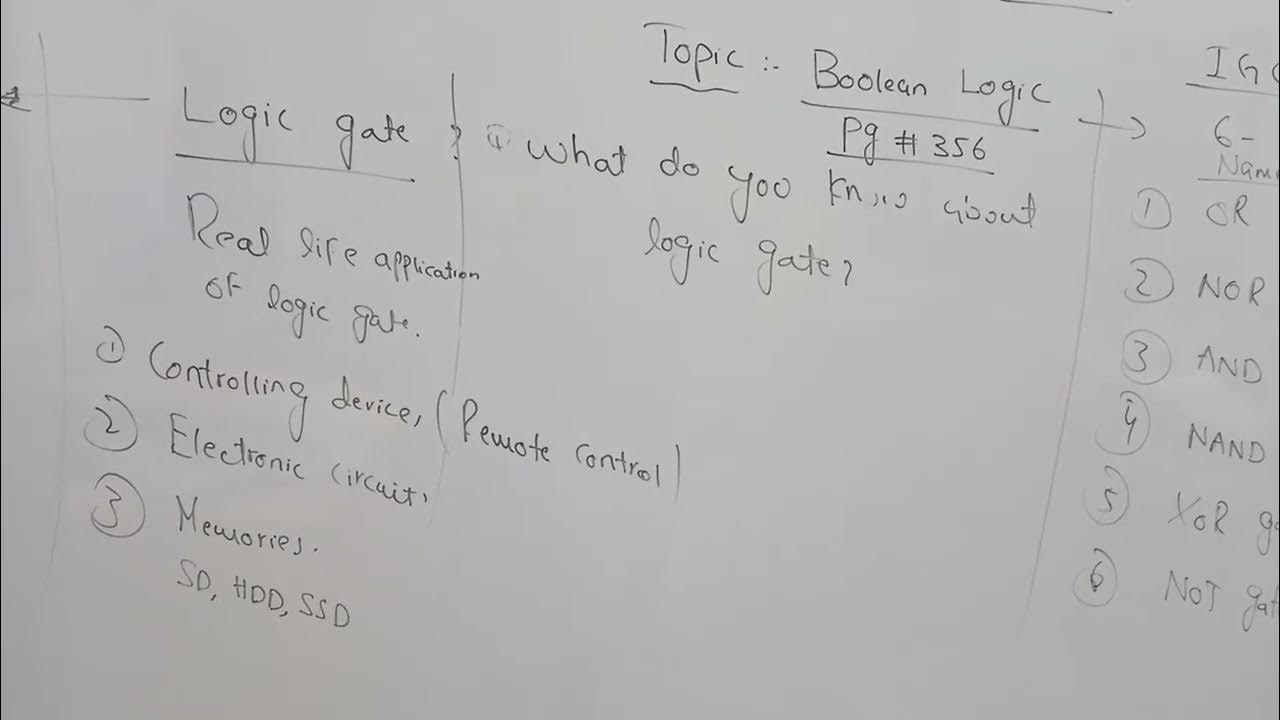 Topic :- Boolean Logic
Pg # 356
① What do yoo know about
logic gate?
Logic gate ?
Real life application
of logic gate.
① Controlling devices (Remote control)
② Electronic circuits
③ Memories.
SD, HDD, SSD
IGC
6-
Name
① OR
② NOR
③ AND
④ NAND
⑤ XOR g
⑥ NOT gat